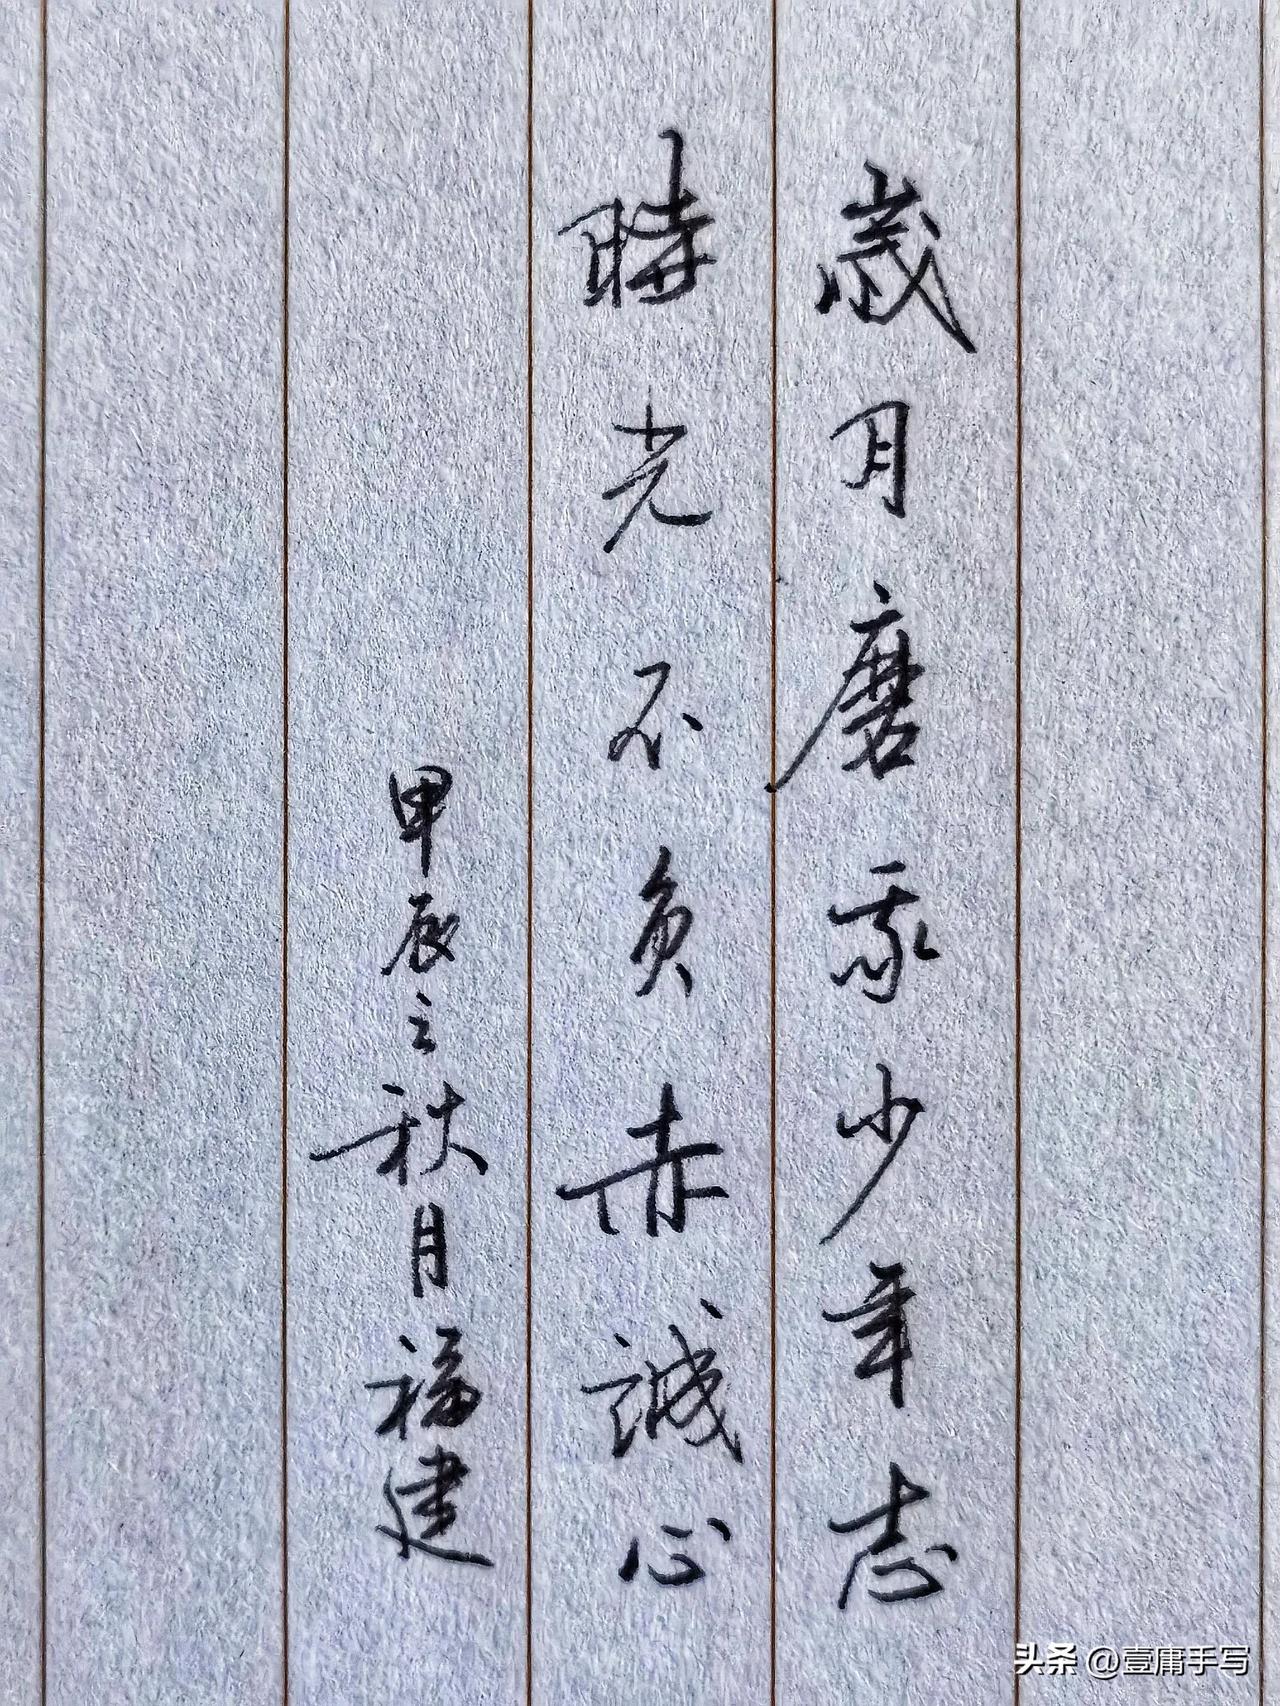 歲月磨我少年志
時光不負赤誠心
甲辰之秋月福建
头条 @壹庸手写